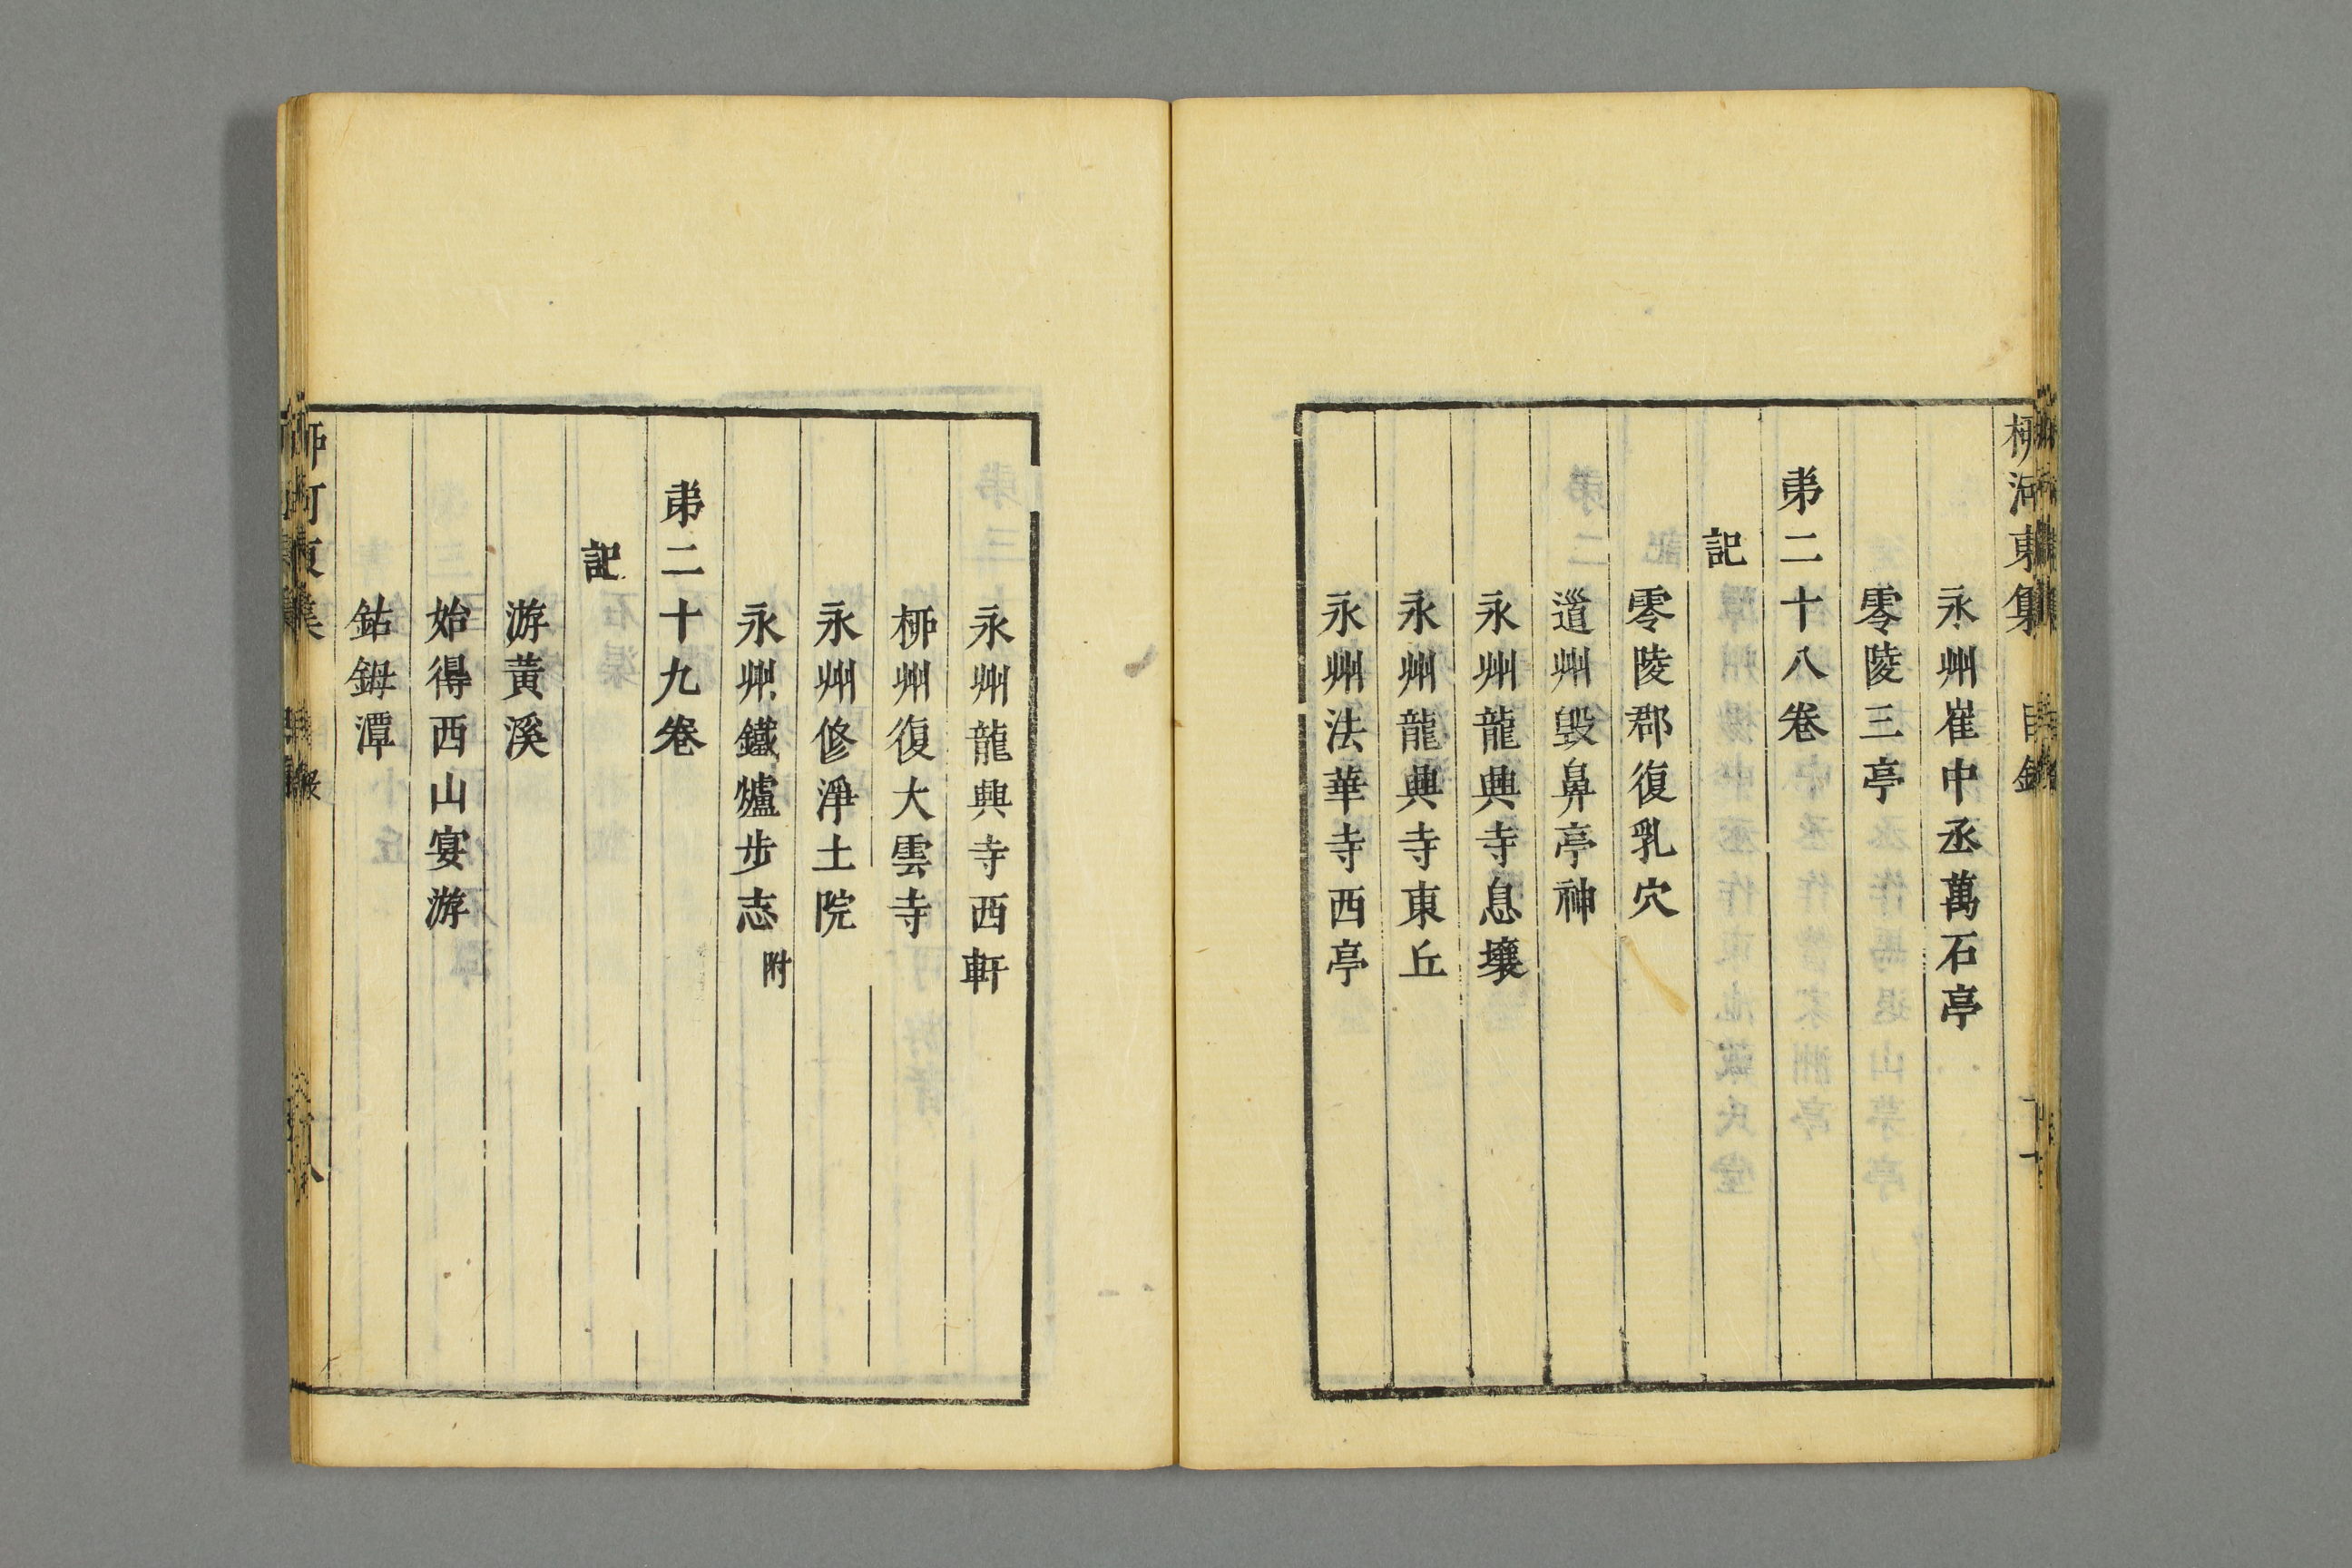 柳河東集 目録
永州崔中丞萬石亭
零陵三亭
弟二十八卷
記
零陵郡復乳穴
道州毀鼻亭神
永州龍興寺息壤
永州龍興寺東丘
永州法華寺西亭
永州龍興寺西軒
柳州復大雲寺
永州修淨土院
永州鐵爐步志 附
弟二十九卷
記
游黃溪
始得西山宴游
鈷鉧潭